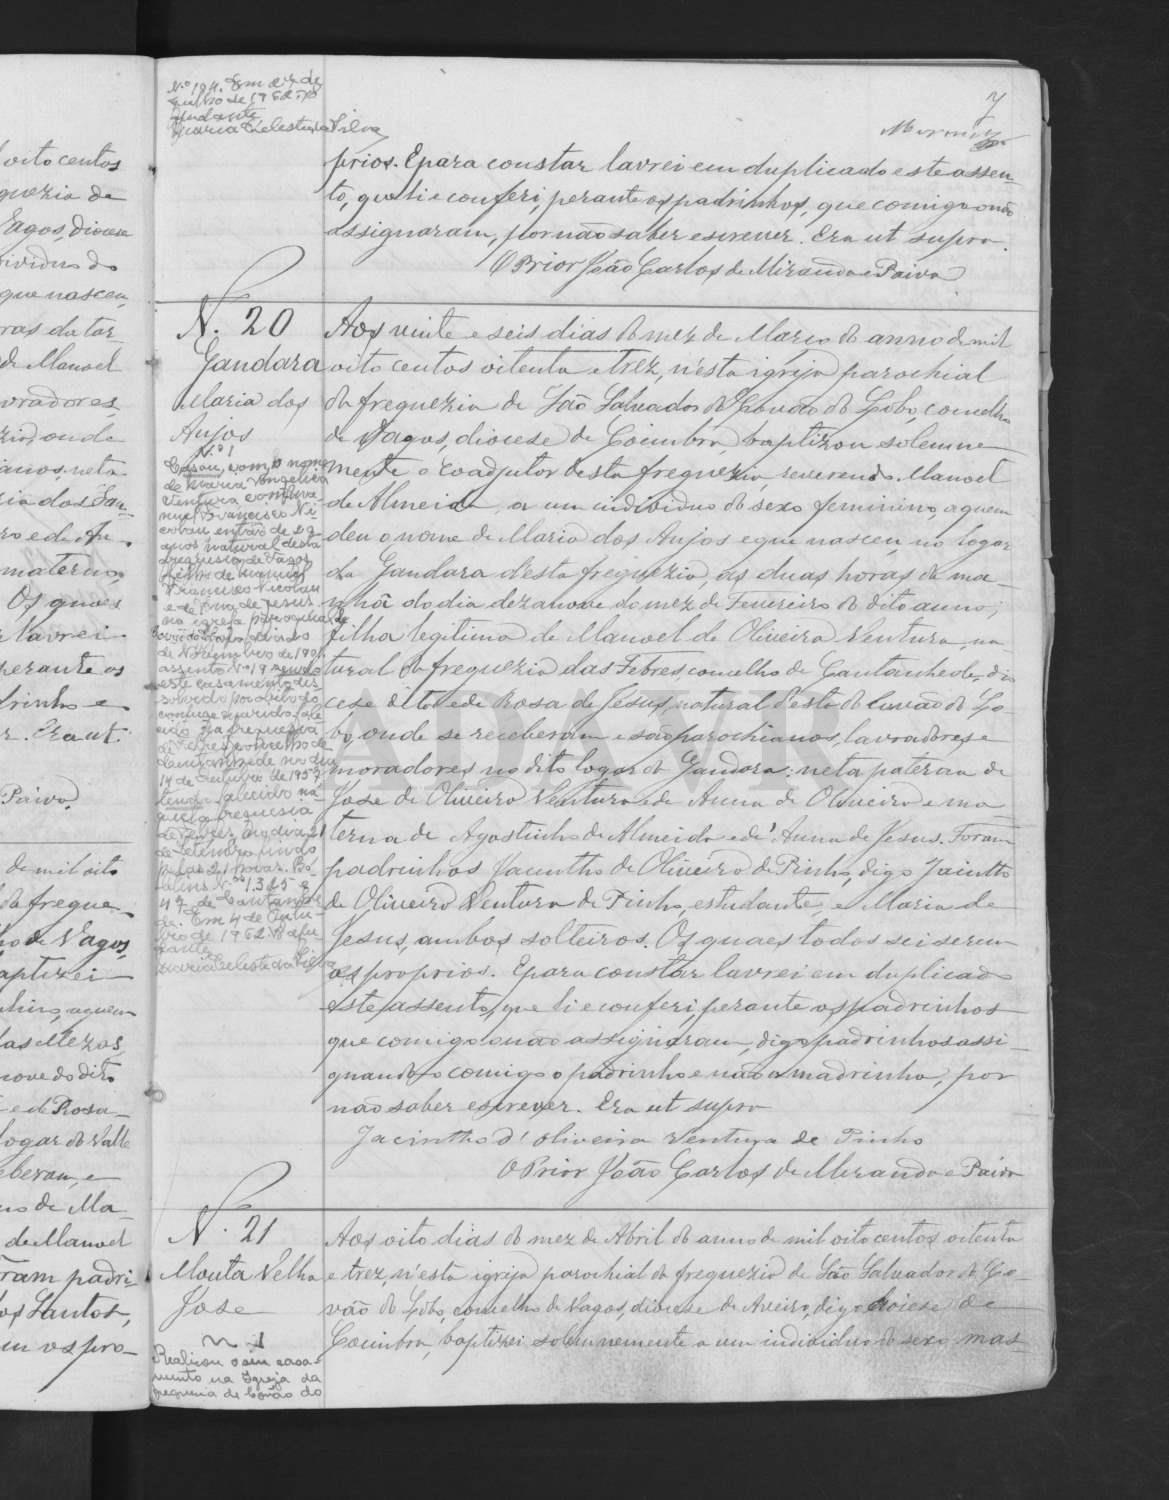 7
Nº 194. Em 27 de
Julho de 1962. O
Ajudante
Maria Celeste da Silva
prios. E para constar lavrei em duplicado este assen-
to, que li e conferi, perante os padrinhos, que comigo não
assignaram, por não saber escrever. Era ut supra.
O Prior João Carlos de Miranda e Paiva
N. 20
Gandara
Maria dos
Anjos
Nº 1
Casou, com o nome
de Maria Angelica
Ventura com Ma-
nuel Francisco Ni-
colau, então de 29
anos natural desta
freguesia de
filho de Manuel
Francisco Nicolau
e de Ana de Jesus
na igreja paroquial de
Covão do Lobo
de Novembro de 1901
assento nº 19 sendo
este casamento dis-
solvido por obito do
conjuge marido
na freguesia
de Febres concelho de
Cantanhede no dia
14 de de 195
tendo falecido na-
quela freguesia
de Febres no dia 21
de Setembro findo
Bo-
letins Nos 1.325 e
47 de Cantanhe-
de. Em 4 de Outu-
bro de 1962. O Aju-
dante
Maria Celeste da Silva
Aos vinte e seis dias do mez de Março do anno de mil
oito centos oitenta e trez, n'esta igreja parochial
da freguezia de São Salvador do Covão do Lobo, concelho
de Vagos, diocese de Coimbra, baptizou solemne
mente o coadjutor desta freguezia, reverendo Manoel
de Almeida, a um individuo do sexo feminino, a quem
deu o nome de Maria dos Anjos e que nasceu no logar
da Gandara d'esta freguezia, ás duas horas da ma-
nhã do dia dezanove do mez de Fevereiro do dito anno;
filha legitima de Manoel de Oliveira Ventura, na
tural da freguezia das Febres, concelho de Cantanhede, dio
cese dita e de Rosa de Jesus, natural d'esta do Covão do Lo-
bo, onde se receberam e são parochianos, lavradores e
moradores no dito logar da Gandara: neta paterna de
Jose de Oliveira Ventura e de Anna de Oliveira e ma
terna de Agostinho de Almeida e de Anna de Jesus. Foram
padrinhos Jacintho de Oliveira de Pinho, digo Jacintho
de Oliveira Ventura de Pinho, estudante, e Maria de
Jesus, ambos solteiros. Os quaes todos sei serem
os proprios. E para constar lavrei em duplicado
este assento, que li e conferi, perante os padrinhos
que comigo não assignaram, digo padrinhos assi-
gnando comigo o padrinho e não a madrinha, por
não saber escrever. Era ut supra
Jacintho d'Oliveira Ventura de Pinho
O Prior João Carlos de Miranda e Paiva
N. 21
Mouta Velha
Jose
Nº 1
Realisou o seu casa-
mento na Igreja da
freguesia de Covão do
Aos oito dias do mez de Abril do anno de mil oito centos oitenta
e trez, n'esta igreja parochial da freguezia de São Salvador do Co-
vão do Lobo, concelho de Vagos, diocese de Aveiro, digo diocese de
Coimbra, baptizei solemnemente a um individuo do sexo mas-
oito centos
guezia de
Vagos, diocese
individuo do
que nasceu
ras da tar-
de Manoel
vradores
onde
neta
ria dos San-
materno
Os quaes
lavrei
perante os
drinho e
r. Era ut.
Paiva.
de mil oito
da fregue-
de Vagos,
aptizei
a quem
das Mezas,
nove do dito
e de Rosa
logar do Valle
ceberam, e
de Ma-
de Manoel
ram padri-
os Santos,
em os pro-
ADAVR